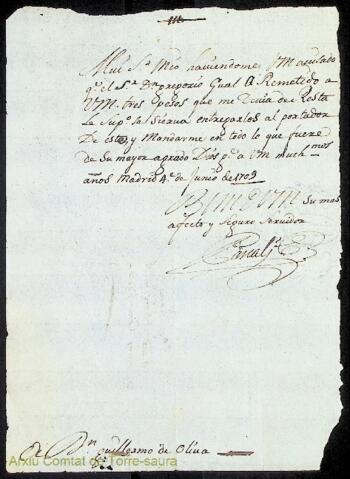 Mui Sr Mio haviendome VM avisado
qe el Sr Dn Gregorio Gual a Remetido a
VM. tres pesos que me devia de Resta
Le Supco la Sirva entregarlos al portador
De este y Mandarme en todo lo que fuere
de su mayor agrado Dios ge a VM muchos
años Madrid 4 de Junio de 1709
BLM de VM su mas
afecto y Seguro servidor
A Dn Guillermo de Oliva
Arxiu Comtat de Torre-saura